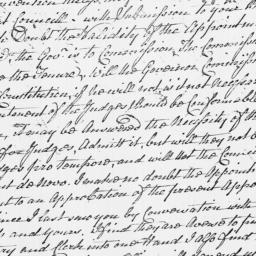 t Councill - with Submission to
to Doubt the Validity of the Appointm
d, the Gov:r is to Commission, the Commission
the Tenure, Will the Governor Commission
Constitution, if he will not, is it not Necessar
ntment of the Judges should be Conformable
, it may be Answered the Necessity of th
for Judges, Admitt it, but will they not
dges pro tempore, and will not the Councill
nt de Novo. I make no doubt the Appoint
nt to an Approbation of the present Appo
ince I last saw you by Conversation with
& and yours. I find they are Averse to
ry and Clerk into one Hand I also find